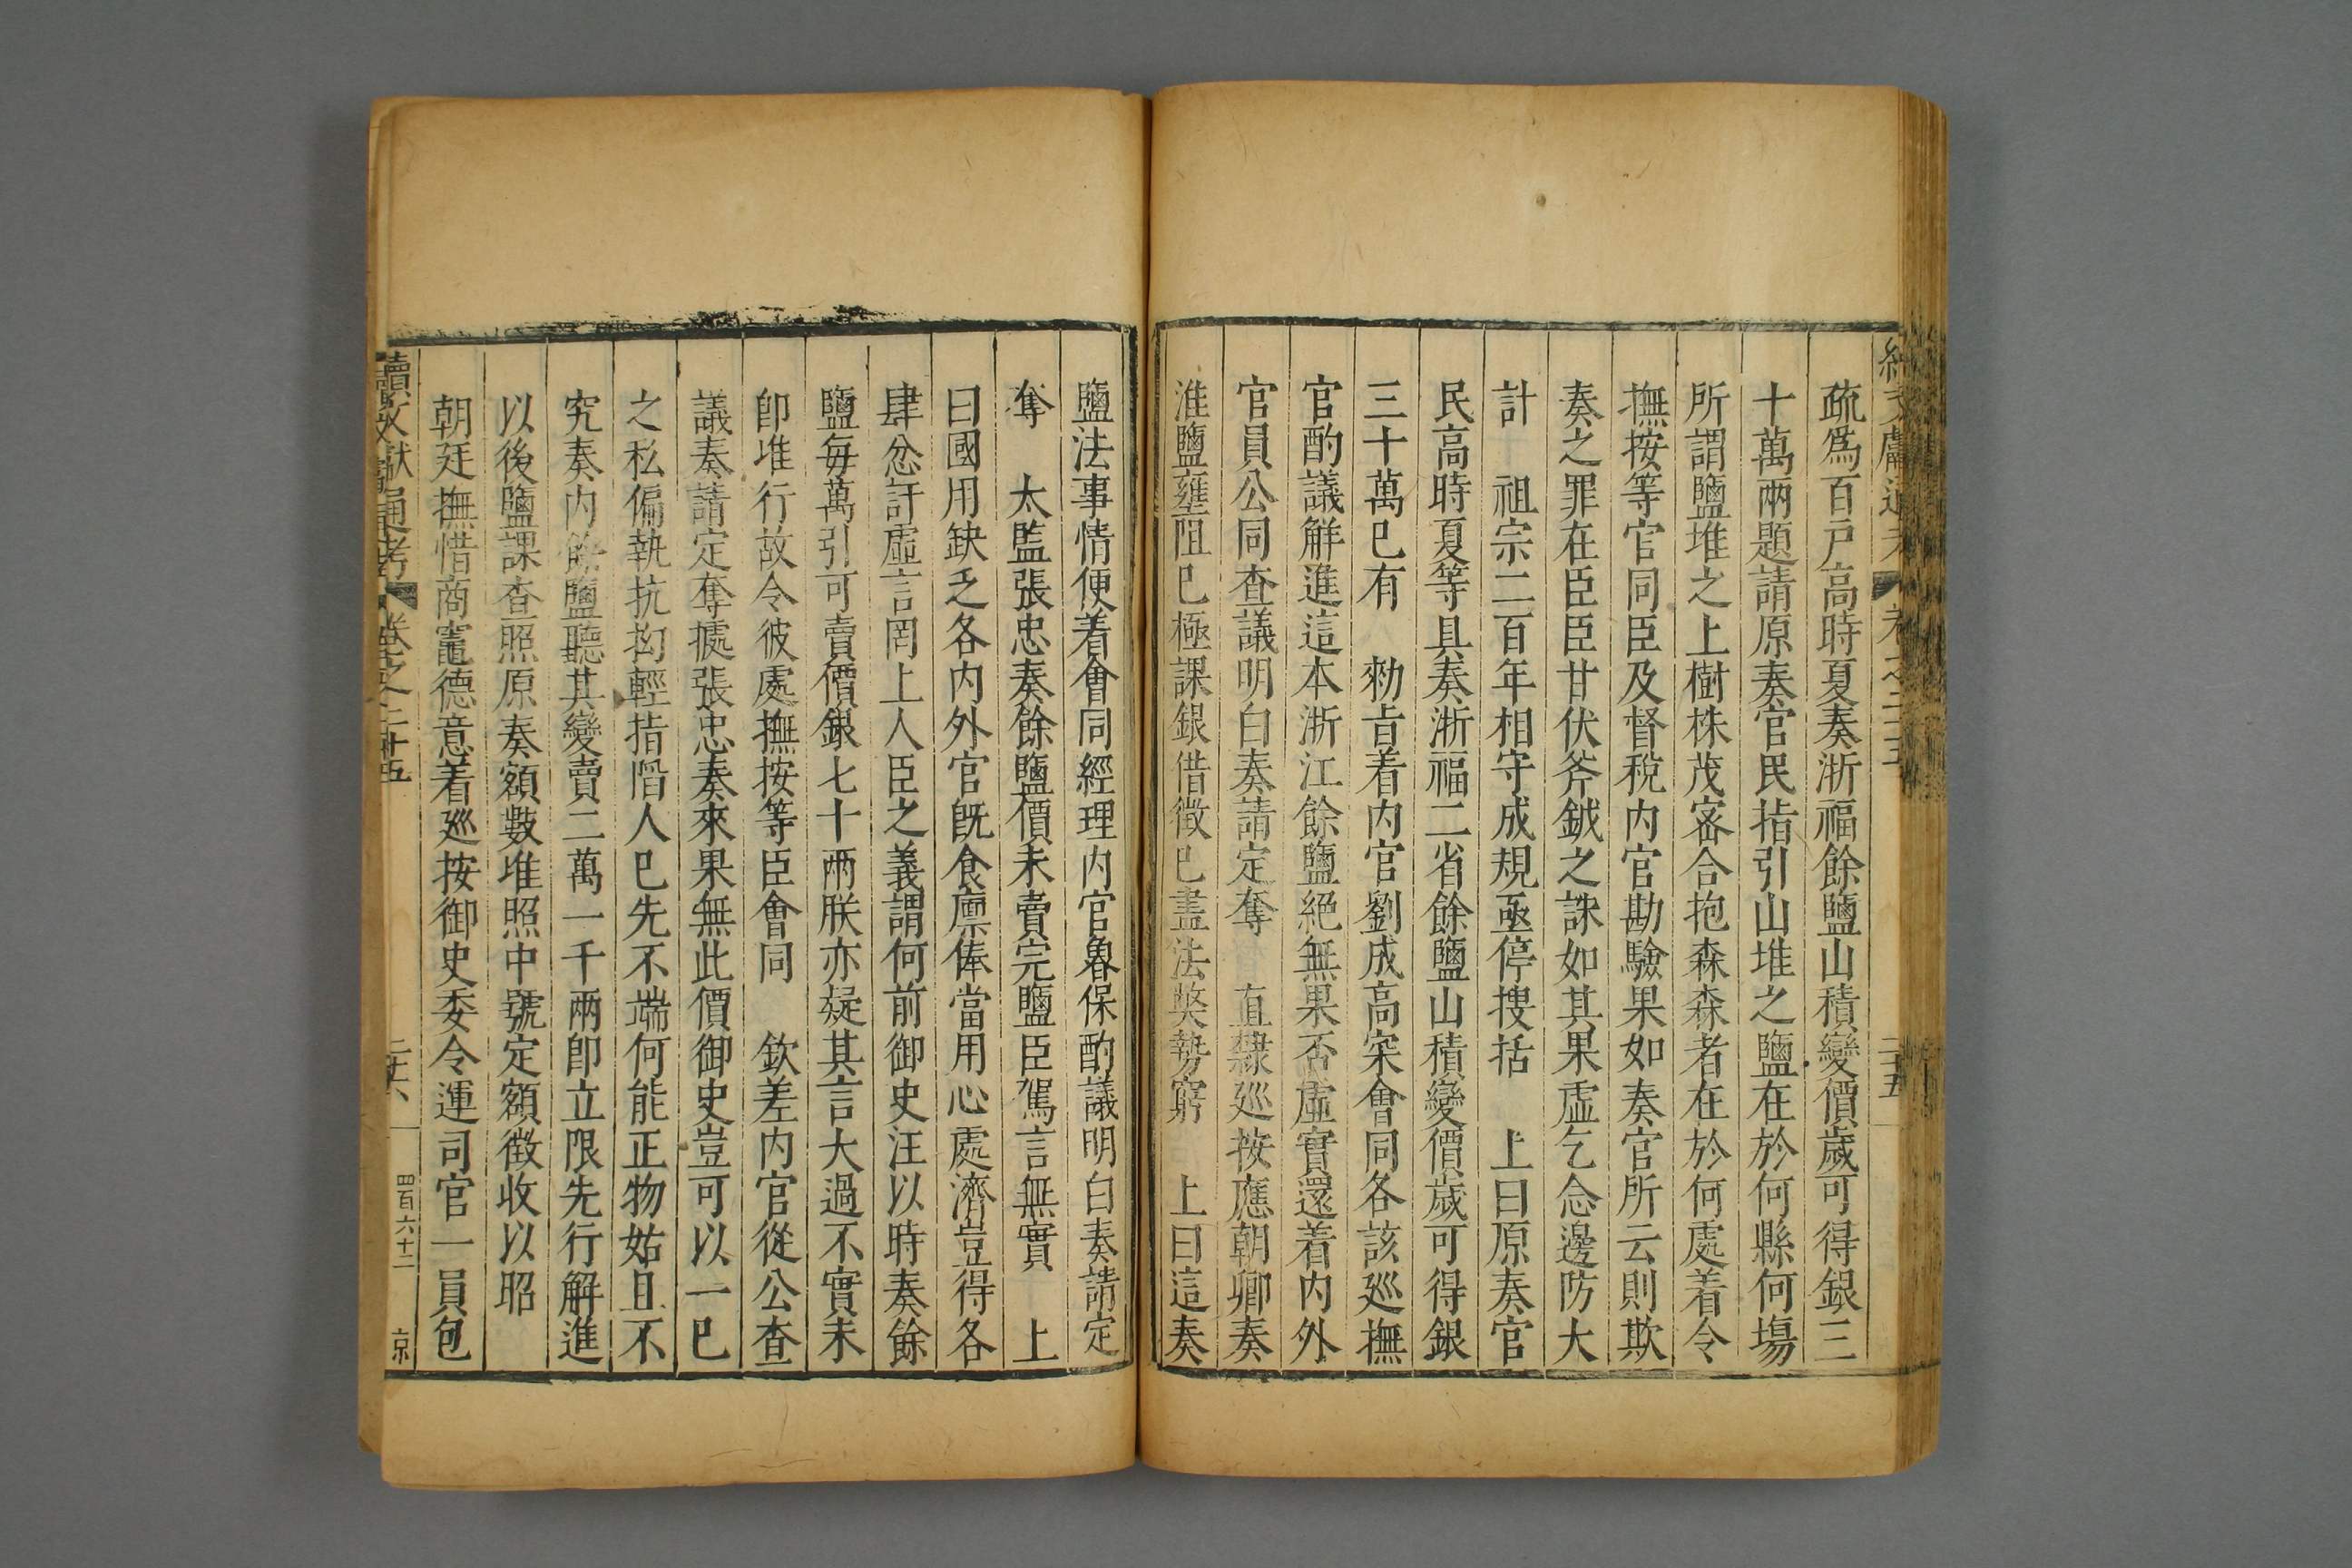 疏爲百戸高時夏奏浙福餘鹽山積變價歲可得銀三
十萬兩題請原奏官民指引山堆之鹽在於何縣何塲
所謂鹽堆之上樹株茂宻合抱森森者在於何處着令
撫按等官同臣及督稅内官勘驗果如奏官所云則欺
奏之罪在臣臣甘伏斧鉞之誅如其果虛乞念邊防大
計　祖宗二百年相守成規亟停搜括　上曰原奏官
民高時夏等具奏浙福二省餘鹽山積變價歲可得銀
三十萬已有　勑旨着内官劉成高寀會同各該廵撫
官酌議解進這本浙江餘鹽絕無果否虛實還着内外
官員公同查議明白奏請定奪　直隸廵按應朝卿奏
淮鹽壅阻已極課銀借徵已盡法獘勢窮　上曰這奏
鹽法事情便着會同經理内官魯保酌議明白奏請定
奪　太監張忠奏餘鹽價未賣完鹽臣駕言無實　上
曰國用缺乏各内外官旣食廪俸當用心處濟豈得各
肆忿訐虛言罔上人臣之義謂何前御史汪以時奏餘
鹽每萬引可賣價銀七十兩朕亦疑其言大過不實未
卽堆行故令彼處撫按等臣會同　欽差内官從公查
議奏請定奪據張忠奏來果無此價御史豈可以一巳
之私偏執抗拗輕指䜛人巳先不端何能正物姑且不
究奏内餘鹽聽其變賣二萬一千兩卽立限先行解進
以後鹽課查照原奏額數堆照中號定額徵收以昭
朝廷撫惜商竈德意着廵按御史委令運司官一員包
續文獻通考　卷之二十五　二十六　四百六十二　京